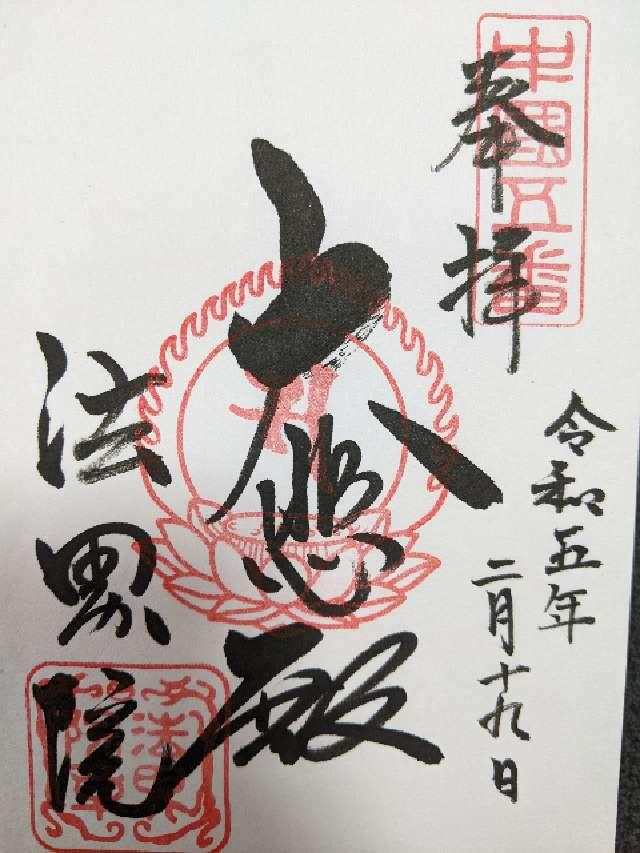 中國五番
奉拝
令和五年
二月十九日
大悲殿
法界院